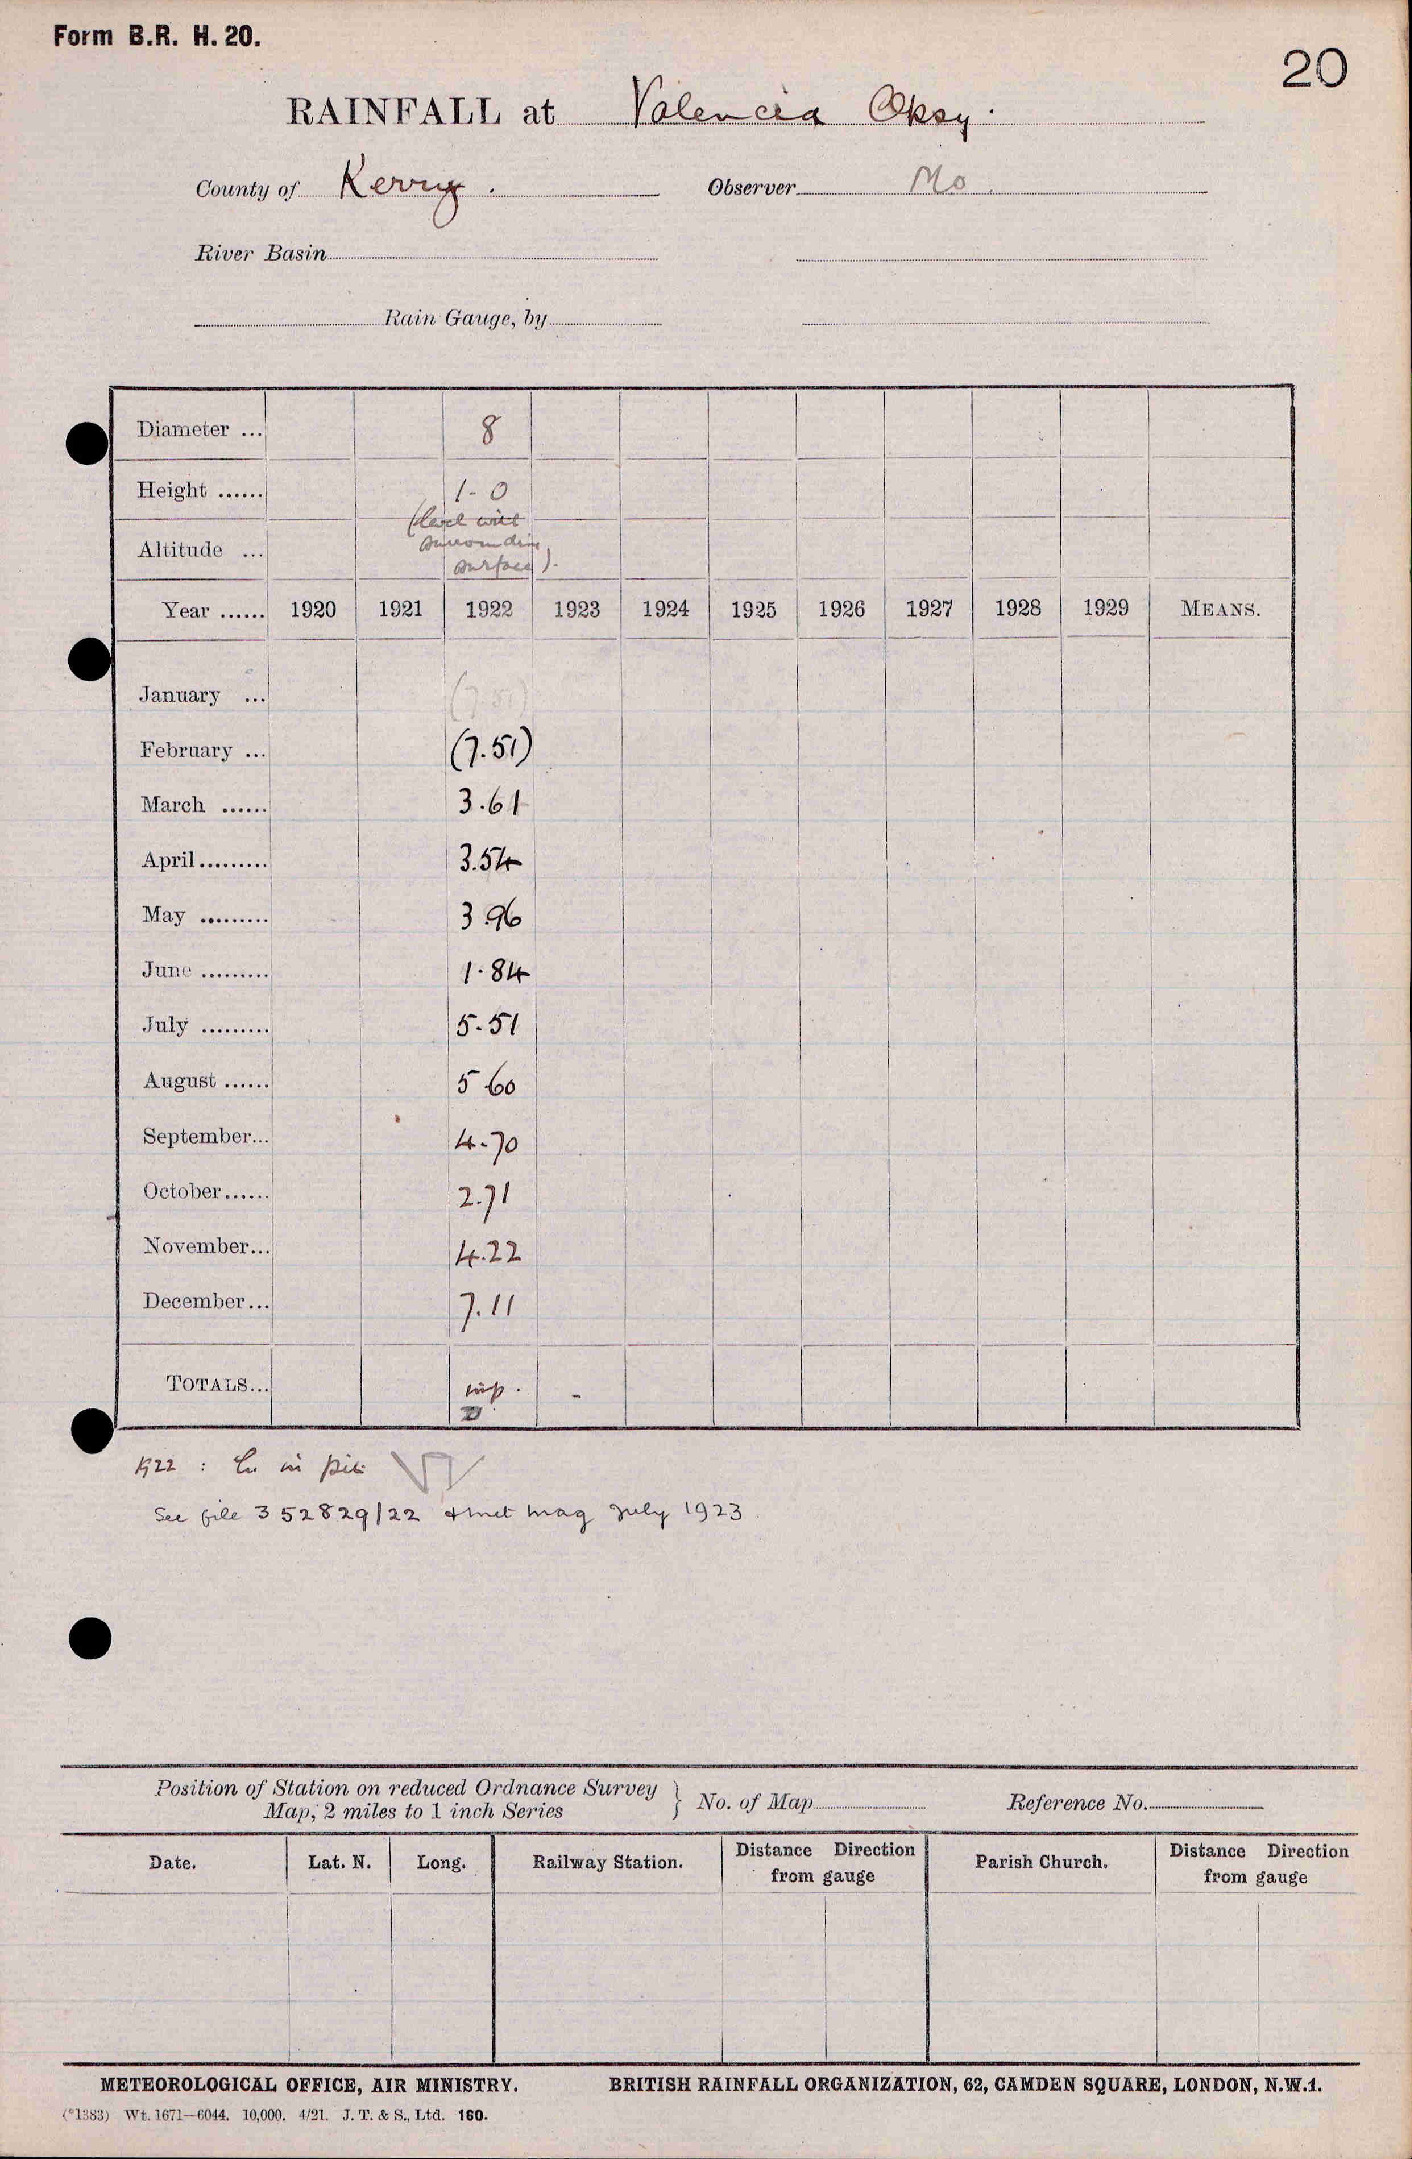 Form B.R. H. 20.
20
RAINFALL at Valencia Obsy.
County of Kerry. Observer Mo
River Basin
Rain Gauge, by
Diameter ... 8
Height ...... 1-0
(level with
surrounding
surface).
Altitude ...
Year ...... 1920 1921 1922 1923 1924 1925 1926 1927 1928 1929 MEANS.
January ... (7.51)
February ... (7.51)
March ...... 3.61
April ......... 3.54
May ......... 3.96
June ......... 1.84
July ......... 5.51
August ...... 5.60
September... 4.70
October...... 2.71
November... 4.22
December... 7.11
TOTALS... imp. -
1922 : in pit
See file 352829/22 & Met Mag July 1923
Position of Station on reduced Ordnance Survey
Map, 2 miles to 1 inch Series } No. of Map Reference No.
Date. Lat. N. Long. Railway Station. Distance Direction from gauge Parish Church. Distance Direction from gauge
METEOROLOGICAL OFFICE, AIR MINISTRY. BRITISH RAINFALL ORGANIZATION, 62, CAMDEN SQUARE, LONDON, N.W.1.
(*1383) Wt. 1671—6044. 10,000. 4/21. J. T. & S., Ltd. 160.